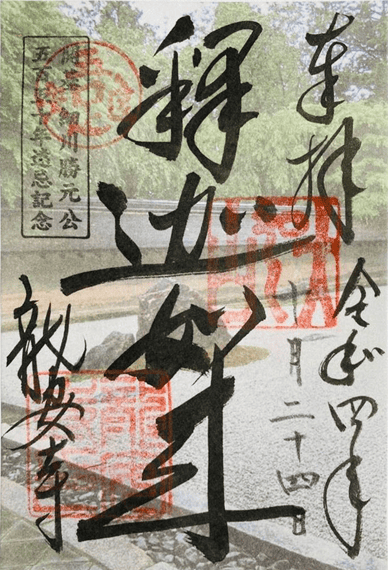 奉拝
令和四年
十一月二十四日
釈迦如来
開基細川勝元公
五百五十年遠忌記念
龍安寺